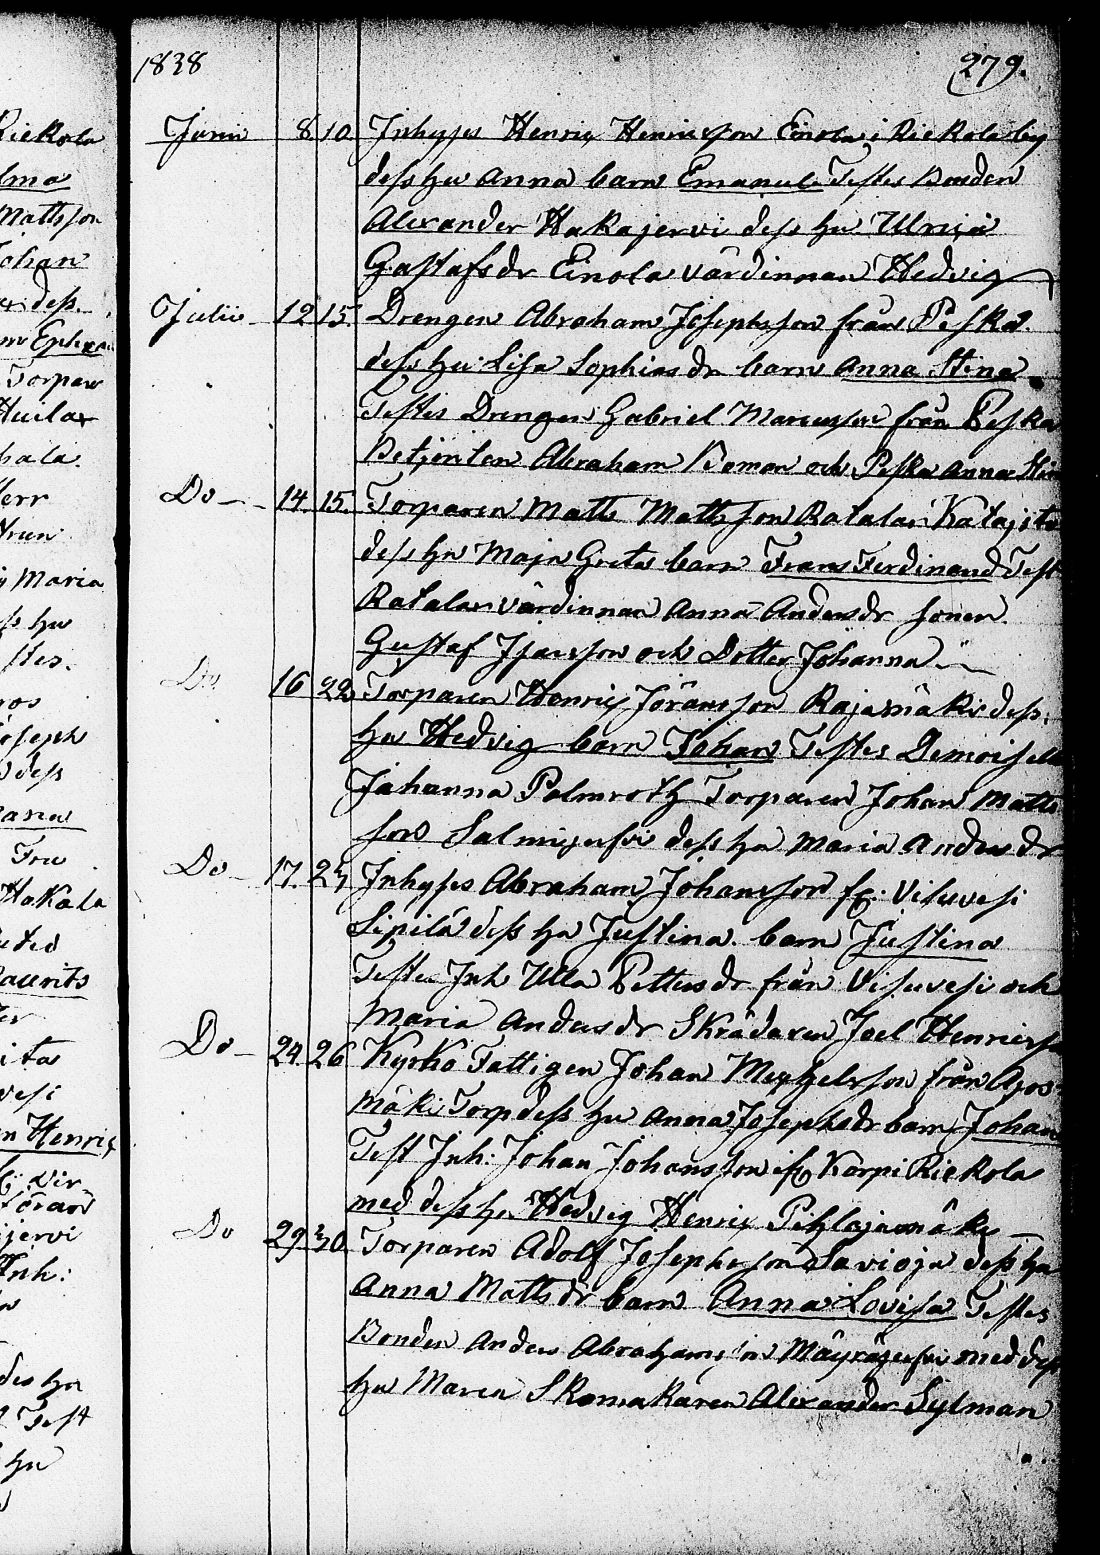 Riekola
lma
Mattsson
Johan
dess
Torpar
hala
Maria
ss hu
Joseph
dess
Fru
Hakala
Maurits
ita
vesi
n Henric
jervi
Inh:
des hu
Test
hu
1838 279.
Junii 8 10 Inhyses Henric Henricsson Einola i Riekola by
dess hu Anna barn Emanuel Testes Bonden
Alexander Hakajervi dess hu Ulrica
Gustafsdr Einola värdinnan Hedvig
Julii 12 15 Drengen Abraham Josephsson från Peska
dess hu Lisa Sophia dr barn Anna Stina
Testes Drengen Gabriel Marcusson från Peska
Betjenten Abraham Boman och Peska Anna Stin
Do 14 15 Torparen Matts Mattsson Ratala Katajisto
dess hu Maja Greta barn Frans Ferdinand Test
Ratala värdinnan Anna Andersdr sonen
Gustaf Isacsson och Dotter Johanna
Do 16 22 Torparen Henric Jöransson Rajamäki dess
hu Hedvig barn Johan Testes Demoiselle
Johanna Palmroth Torparen Johan Matts
son Salmijerfvi dess hu Maria Andersdr
Do 17 23 Inhyses Abraham Johansson fr: Visuvesi
Sipilä dess hu Justina barn Justina
Testes Inh Ulla Pettersdr från Visuvesi och
Maria Andersdr Skrädaren Joel Henricsson
Do 24 26 Kyrko Fattigen Johan Michelsson från Ajos
mäki Torp dess hu Anna Josephsdr barn Johan
Test Inh: Johan Johansson ifr Karpi Riekola
med dess hu Hedvig Henric Pihlajamäki
Do 29 30 Torparen Adolf Josephsson Savioja dess hu
Anna Mattsdr barn Anna Lovisa Testes
Bonden Anders Abrahamsson Mäyräjerfvi med dess
hu Maria Skomakaren Alexander Sylman